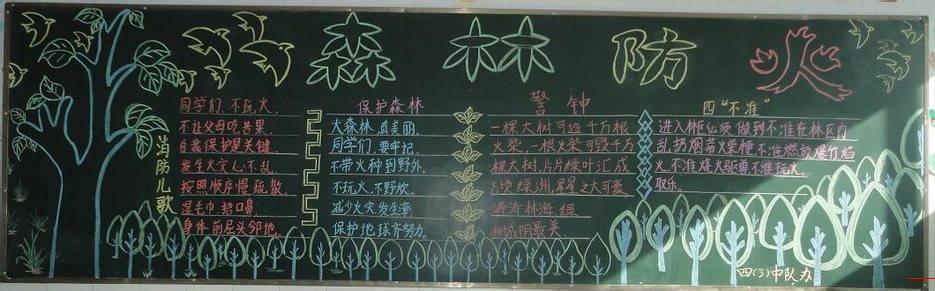 森林防火
消防儿歌
同学们,不玩火,
不让父母吃苦果.
自我保护是关键,
发生火灾心不乱.
按照顺序慢疏散,
湿毛巾 捂口鼻
身体前屈头邻地.
保护森林
大森林 真美丽.
同学们,要牢记.
不带火种到野外.
不玩火,不野炊.
减少火灾发生率
保护地球齐努力.
警钟
一棵大树可造千万根
火柴,一根火柴可毁千万
棵大树,片片绿叶汇成
绿洲,星星之火可
涛涛林海 绿
四“不准”
进入林区 做到不准在林区内
乱扔烟蒂火柴梗 不准燃放爆竹焰
火 不准烧火驱兽 不准玩火
取乐.
四(3)中队办